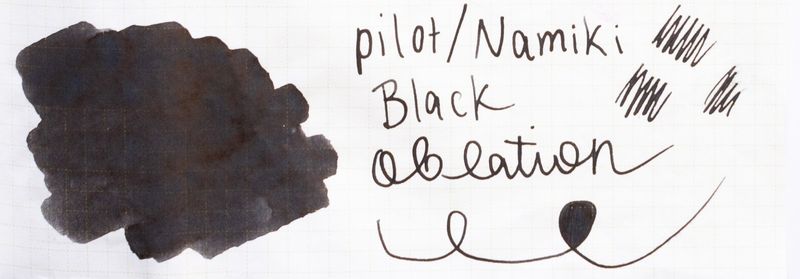 pilot/Namiki
Black
Oblation